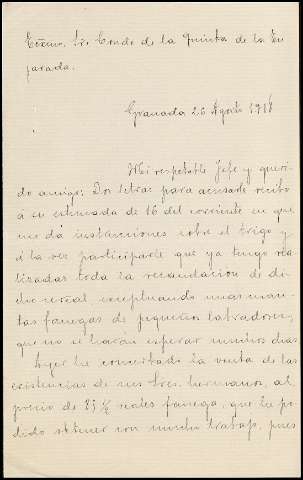 Excmo. Sr. Conde de la Quinta de la En
jarada.
Granada 26 Agosto 1918
Mi respetable Jefe y queri
do amigo: Dos letras para acusarle recibo
á su estimada de 16 del corriente en que
me dá instrucciones sobre el trigo y
á la vez participarle que ya tengo rea
lizadas toda la recaudación de di
cho cereal exceptuando unas cuan
tas fanegas de pequeños labradores,
que no se harán esperar muchos dias
Ayer he concertado la venta de las
existencias de sus tres hermanos, al
precio de 85 ½ reales fanega, que he po
dido obtener con mucho trabajo, pues